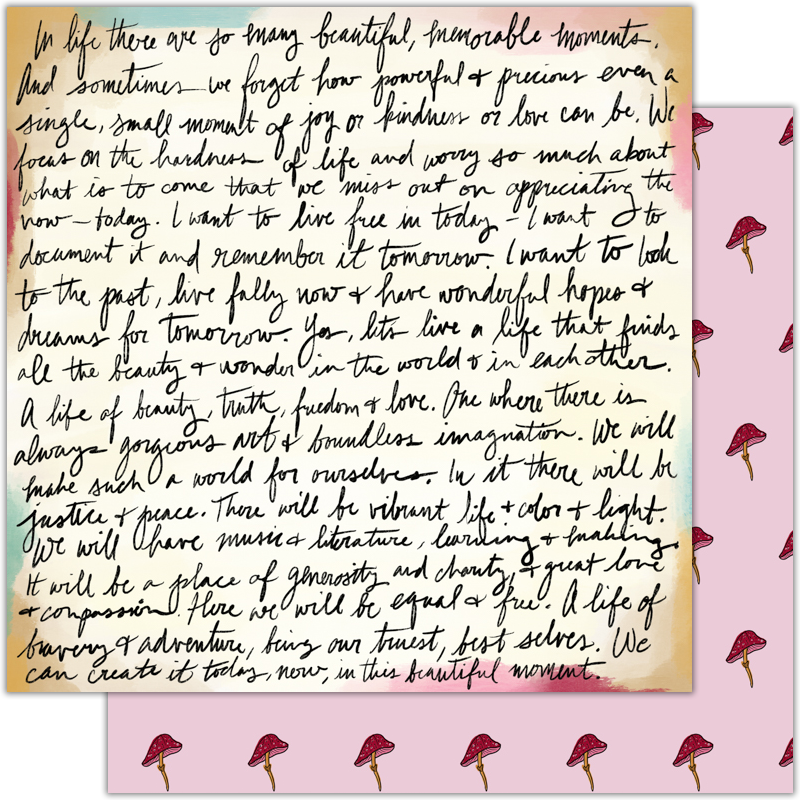 In life there are so many beautiful, memorable moments.
And sometimes we forget how powerful & precious even a
single, small moment of joy or kindness or love can be. We
focus on the hardness of life and worry so much about
what is to come that we miss out on appreciating the
now - today. I want to live free in today - I want to
document it and remember it tomorrow. I want to look
to the past, live fully now & have wonderful hopes &
dreams for tomorrow. Yes, lets live a life that finds
all the beauty & wonder in the world & in each other.
A life of beauty, truth, freedom & love. One where there is
always gorgeous art & boundless imagination. We will
make such a world for ourselves. In it there will be
justice & peace. There will be vibrant life & color & light.
We will have music & literature, learning & making.
It will be a place of generosity and charity, & great love
& compassion. Here we will be equal & free. A life of
bravery & adventure, being our truest, best selves. We
can create it today, now, in this beautiful moment.